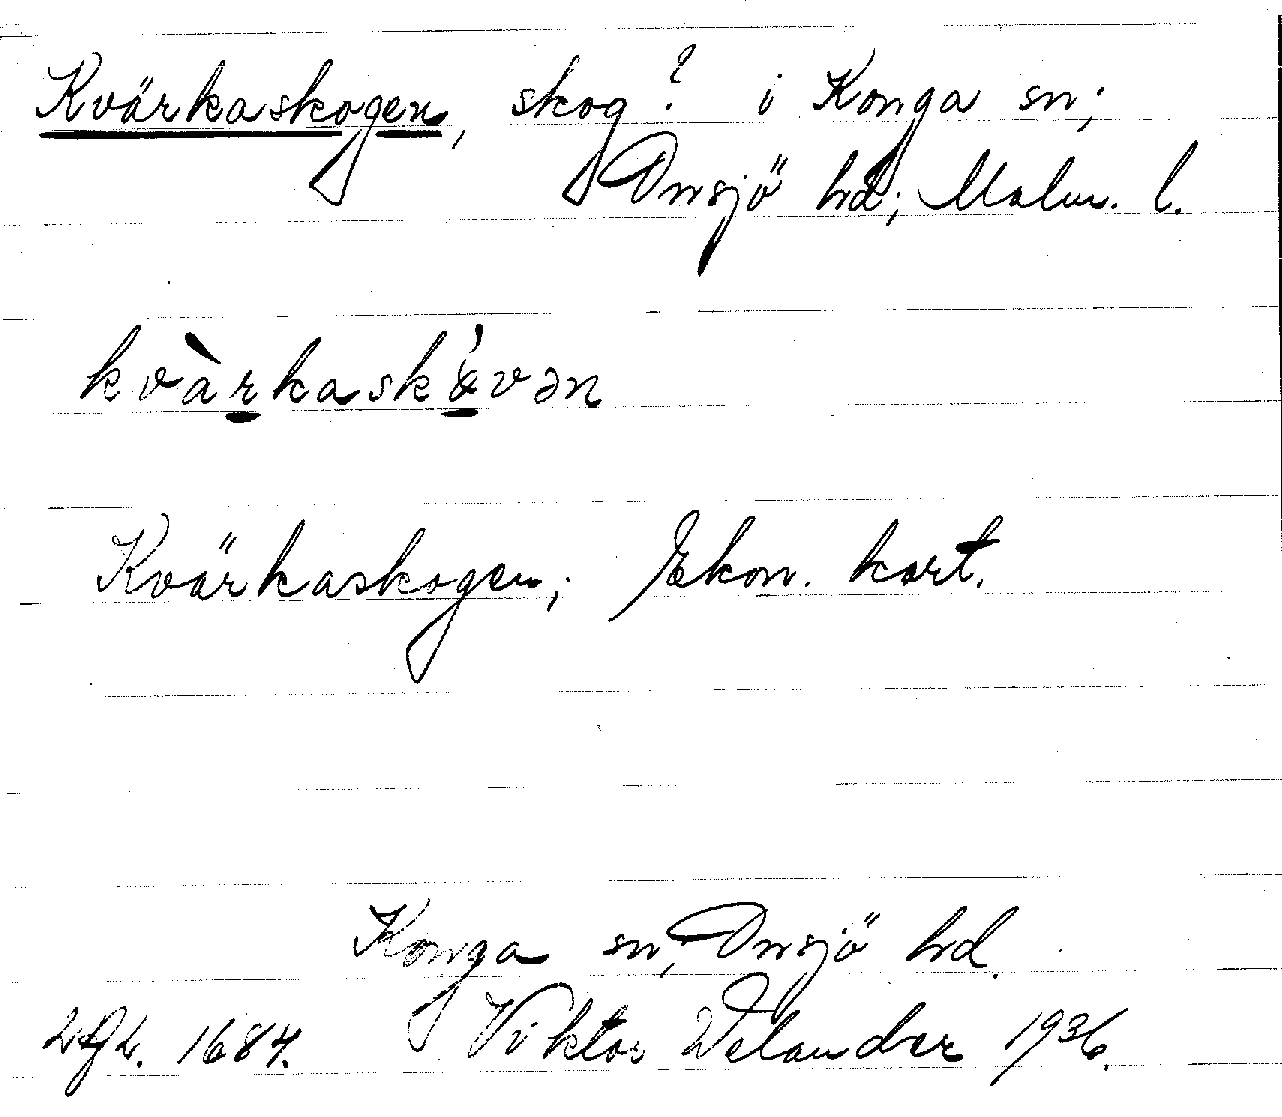 Kvärkaskogen, skog? i Konga sn;
Onsjö hd; Malm. l.
kvàrkaskǻvən
Kvärkaskogen; Ekon. kart.
Konga sn, Onsjö hd.
1684. Viktor Welander 1936.